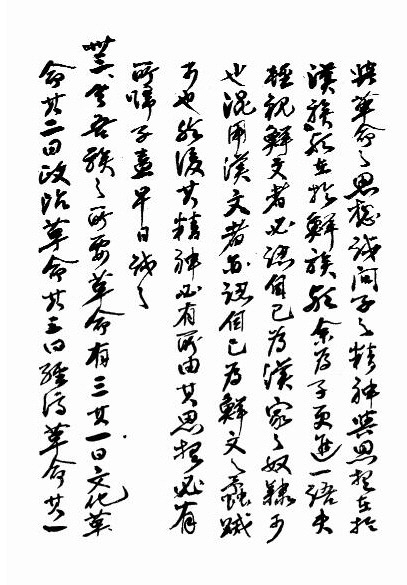 與革命之思想試問子之精神與思想在於
漢族歟在於鮮族歟余為子更進一語夫
輕視鮮文者必認自己為漢家之奴隸可
也混用漢文者亦認自己為鮮文之蟊賊
可也然後其精神必有所由其思想必有
所歸子盍早日試之
今吾族之所要革命有三其一曰文化革
命其二曰政治革命其三曰經濟革命其一